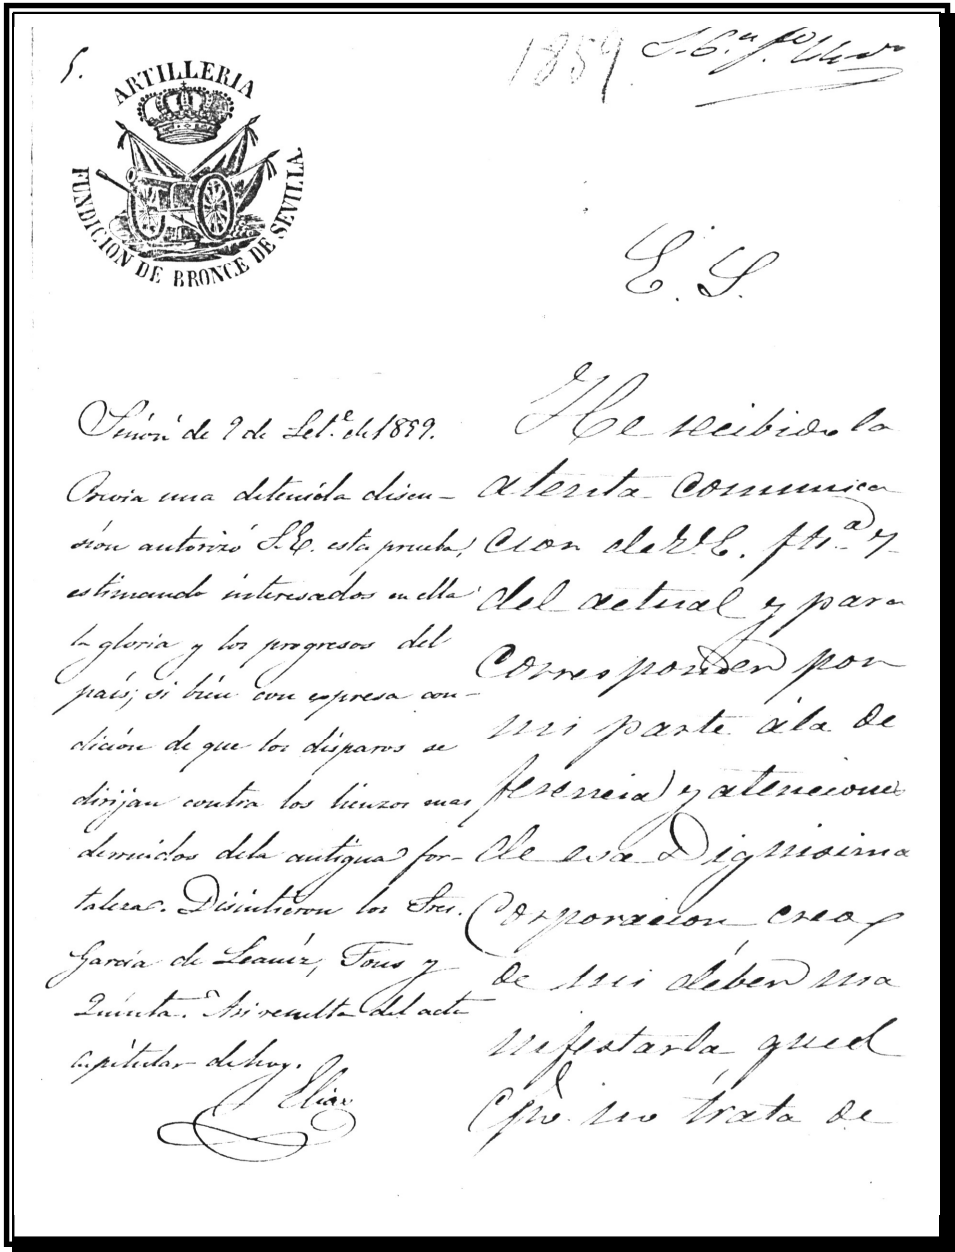 5.
ARTILLERIA
FUNDICION DE BRONCE DE SEVILLA
1859
E. S.
Sesión de 9 de Set.e de 1859.
Previa una detenida discu-
sión autorizó S.E. esta prueba,
estimando interesados en ella
la gloria y los progresos del
país; si bien con expresa con-
dición de que los disparos se
dirijan contra los lienzos mas
derruidos de la antigua for-
taleza. Disintieron los Sres.
García de Leaniz, Fous y
Quinta. Asi resulta del acta
capitular de hoy.
Elias
He recibido la
atenta comunica
cion de V.E. fha 7
del actual y para
corresponder por
mi parte á la de
ferencia y atenciones
de esa Dignisima
Corporacion creo
de mi deber ma
nifestarla, que el
no trata de